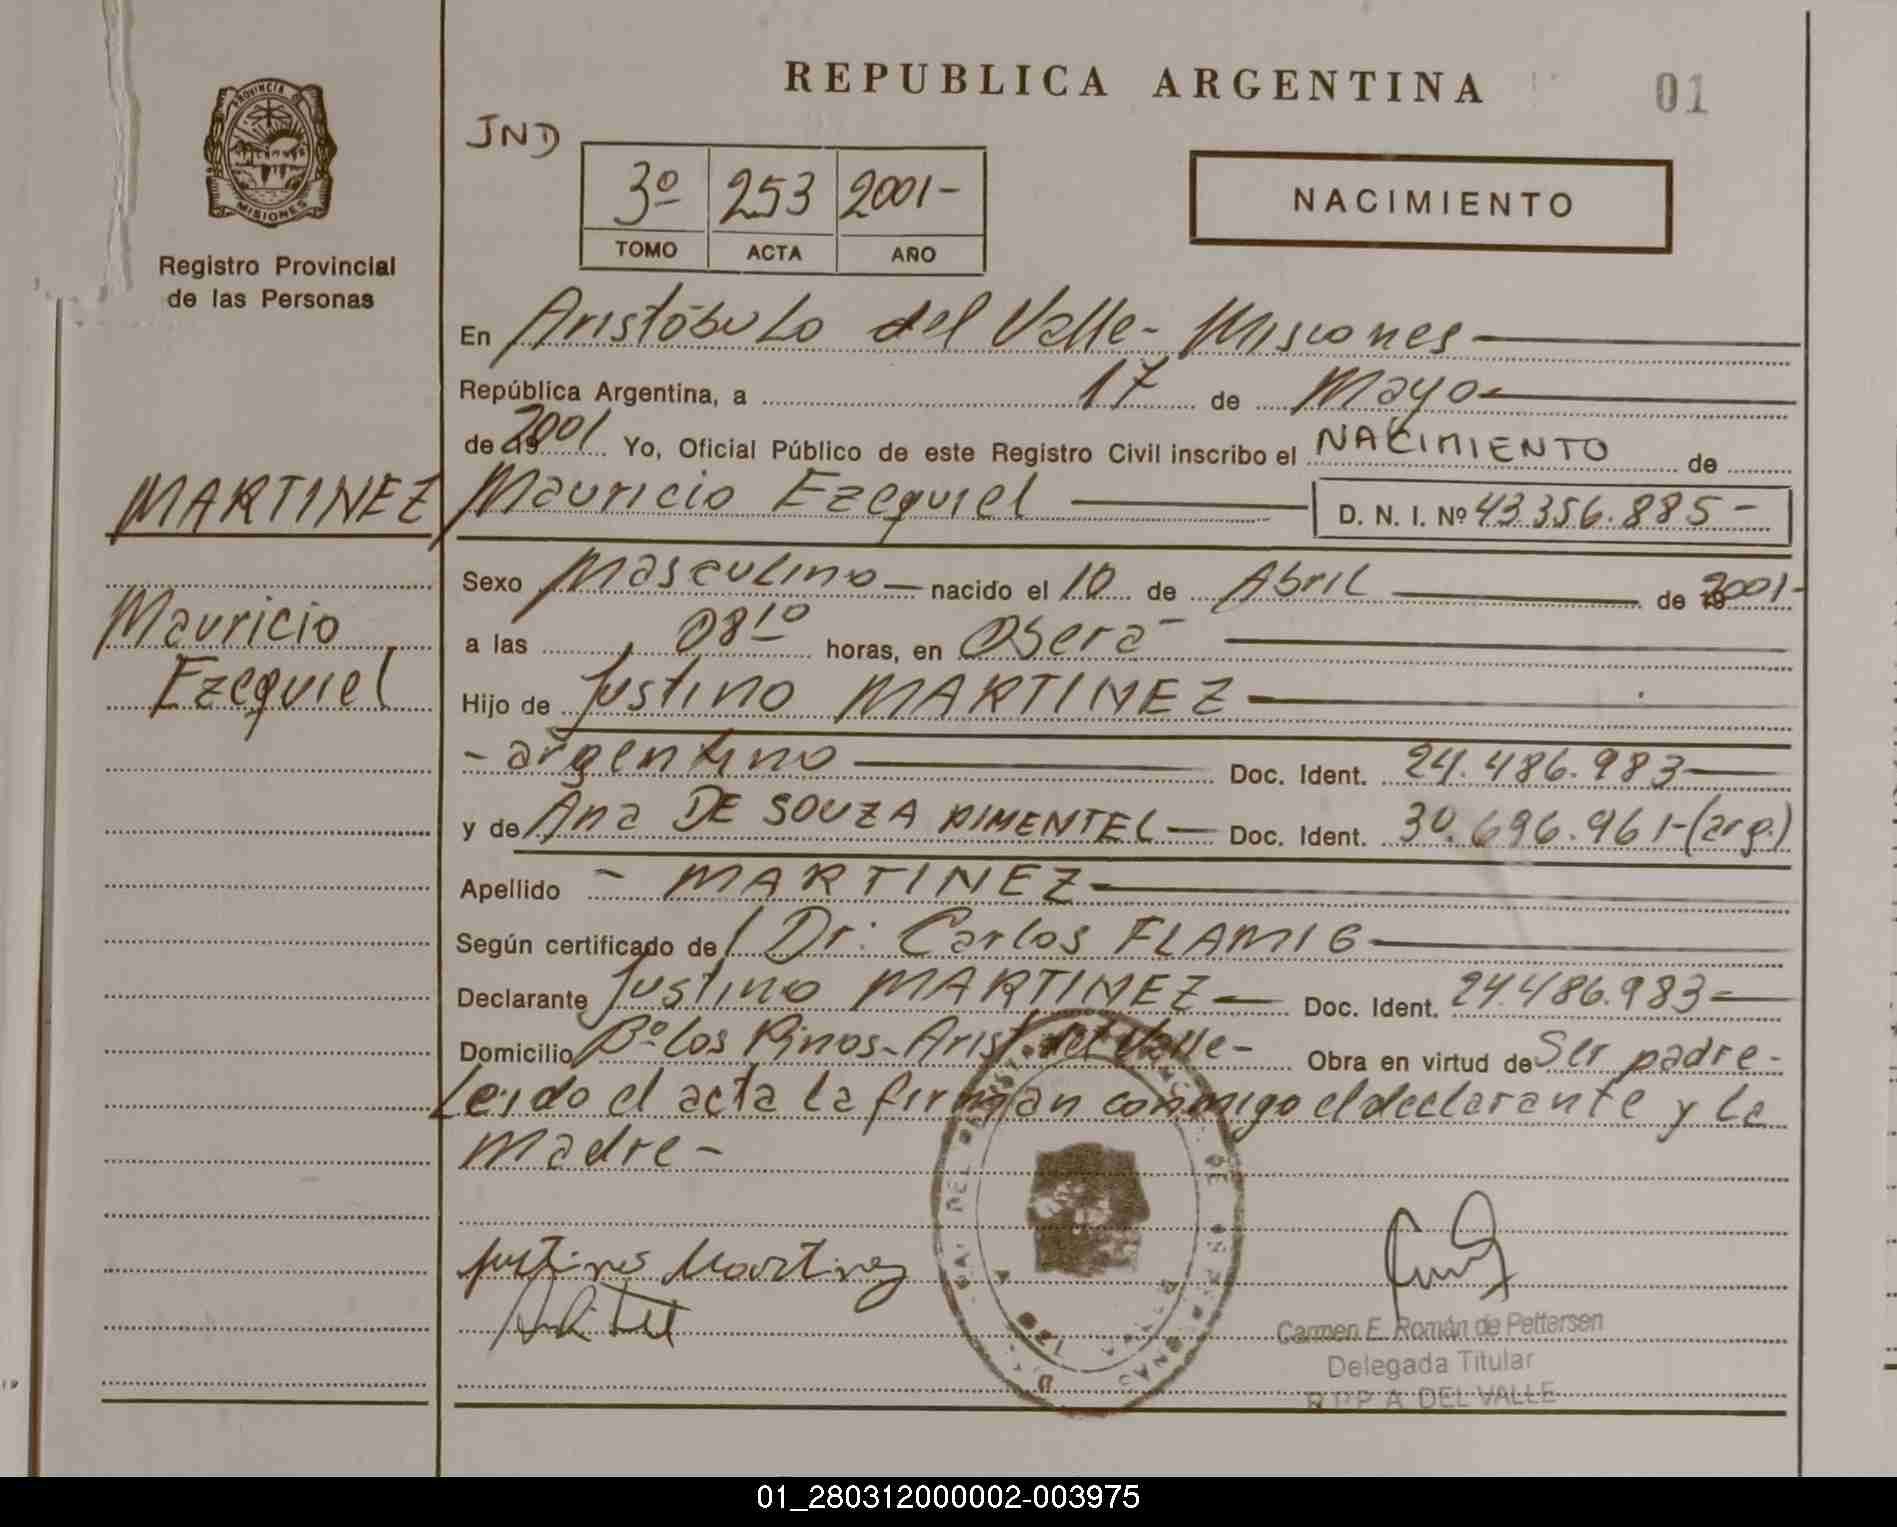 REPUBLICA ARGENTINA
01
PROVINCIA
MISIONES
Registro Provincial
de las Personas
JND
3º 253 2001-
TOMO ACTA AÑO
NACIMIENTO
En Aristóbulo del Valle- Misiones
República Argentina, a 17 de Mayo
de 2001 Yo, Oficial Público de este Registro Civil inscribo el NACIMIENTO de
MARTINEZ
Mauricio
Ezequiel
Mauricio Ezequiel D. N. I. Nº 43.356.885-
Sexo Masculino nacido el 10 de Abril de 2001-
a las 08 10 horas, en Oberá
Hijo de Justino MARTINEZ
- argentino Doc. Ident. 24.486.983
y de Ana DE SOUZA PIMENTEL Doc. Ident. 30.696.961-(arg.)
Apellido - MARTINEZ
Según certificado de Dr: Carlos FLAMIG
Declarante Justino MARTINEZ Doc. Ident. 24.486.983
Domicilio Bº Los Pinos-Arist. del Valle- Obra en virtud de Ser padre-
Leido el acta la firman conmigo el declarante y la
madre-
Justino Martinez
Carmen E. Román de Pettersen
Delegada Titular
A DEL VALLE
01_280312000002-003975